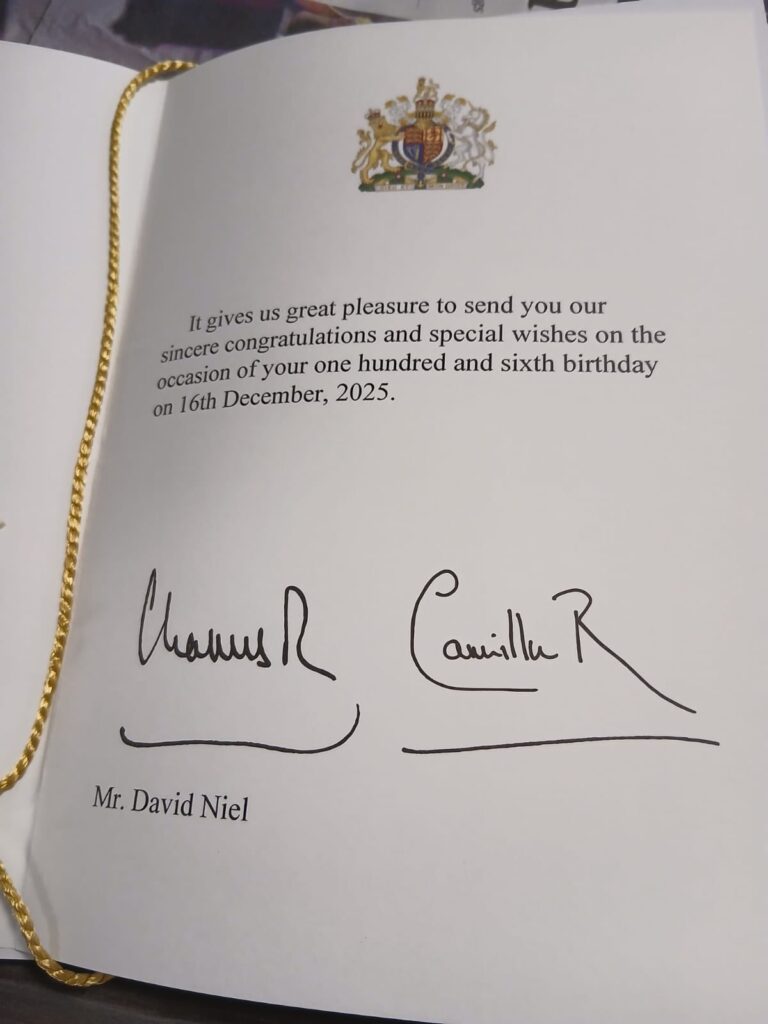 It gives us great pleasure to send you our
sincere congratulations and special wishes on the
occasion of your one hundred and sixth birthday
on 16th December, 2025.
Charles R
Camilla R
Mr. David Niel